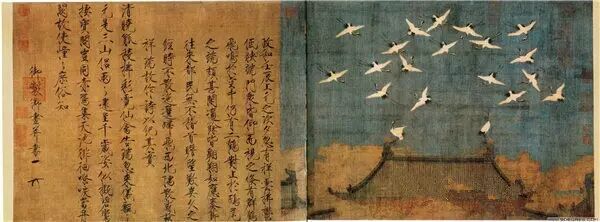 政和壬辰上元之次夕忽有祥雲拂鬱
低映端門眾皆仰而視之倏有群鶴
飛鳴於空中仍有二鶴對止於鴟尾
之端頗甚閒適餘皆翱翔如應奏節
往來都民無不稽首瞻望歎異久之
經時不散迤邐歸飛西北隅散感茲
祥瑞故作詩以紀其實
清曉觚稜拂彩霓仙禽告瑞忽來儀飄飄
元是三山侶兩兩還呈千歲姿似擬碧鸞
棲寶閣豈同赤雁集天池徘徊嘹唳當丹
闕故使憧憧庶俗知
御製御畫並書